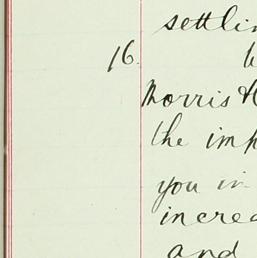 settlin
16.
Morris H
the imp
you in
increa
and